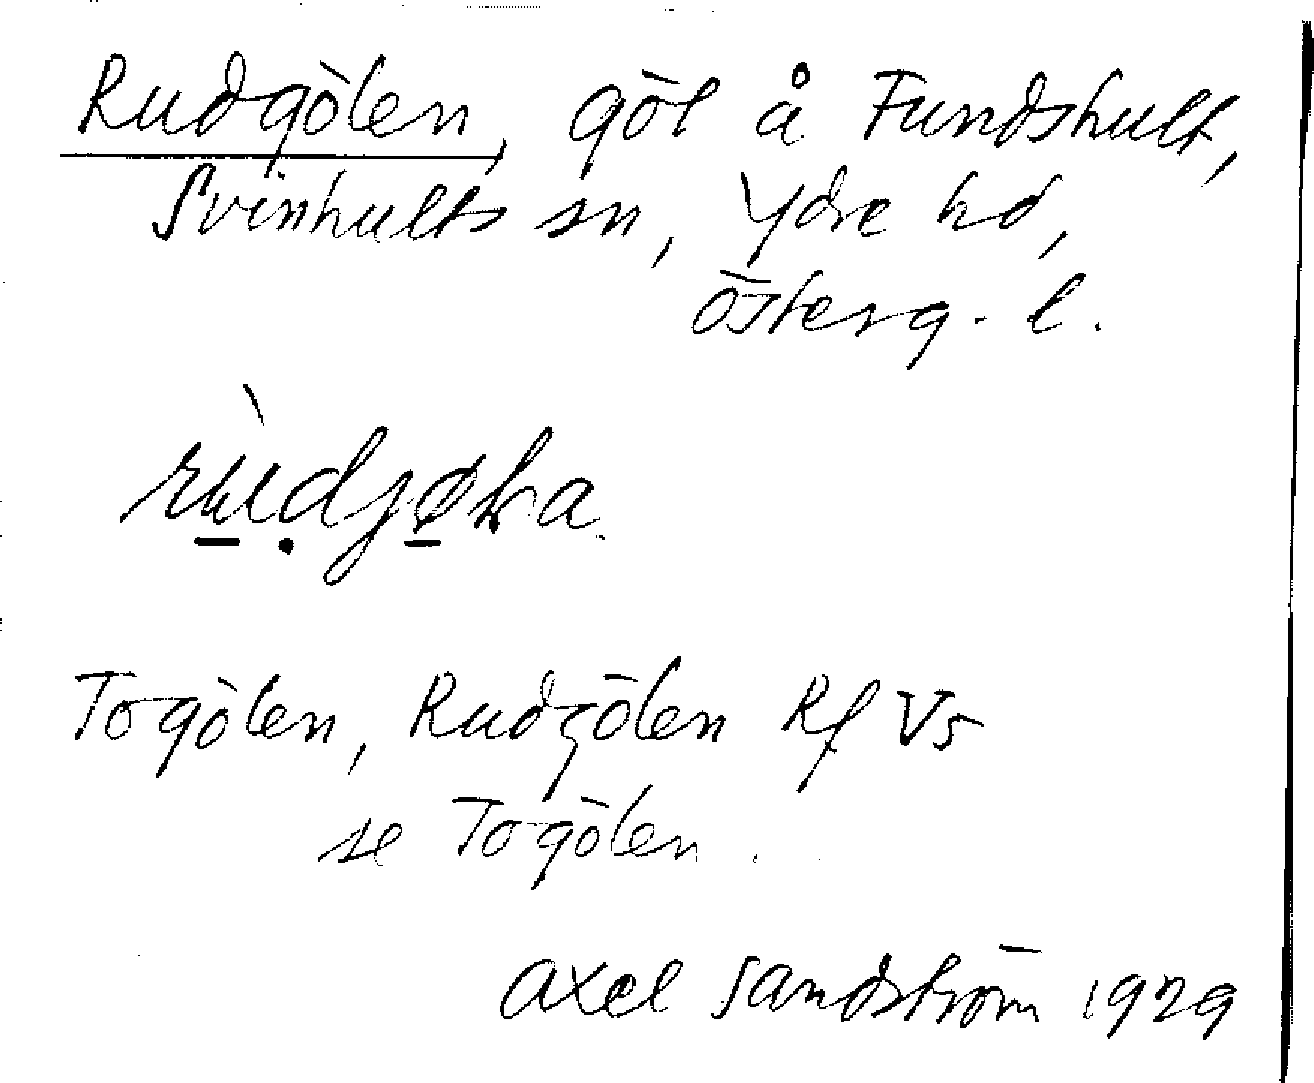 Rudgölen, göl å Fundshult,
Svinhults sn, Ydre hd,
Österg. l.
rùdjøka
Togölen, Rudgölen Rf Vs
se Togölen.
Axel Sandström 1929